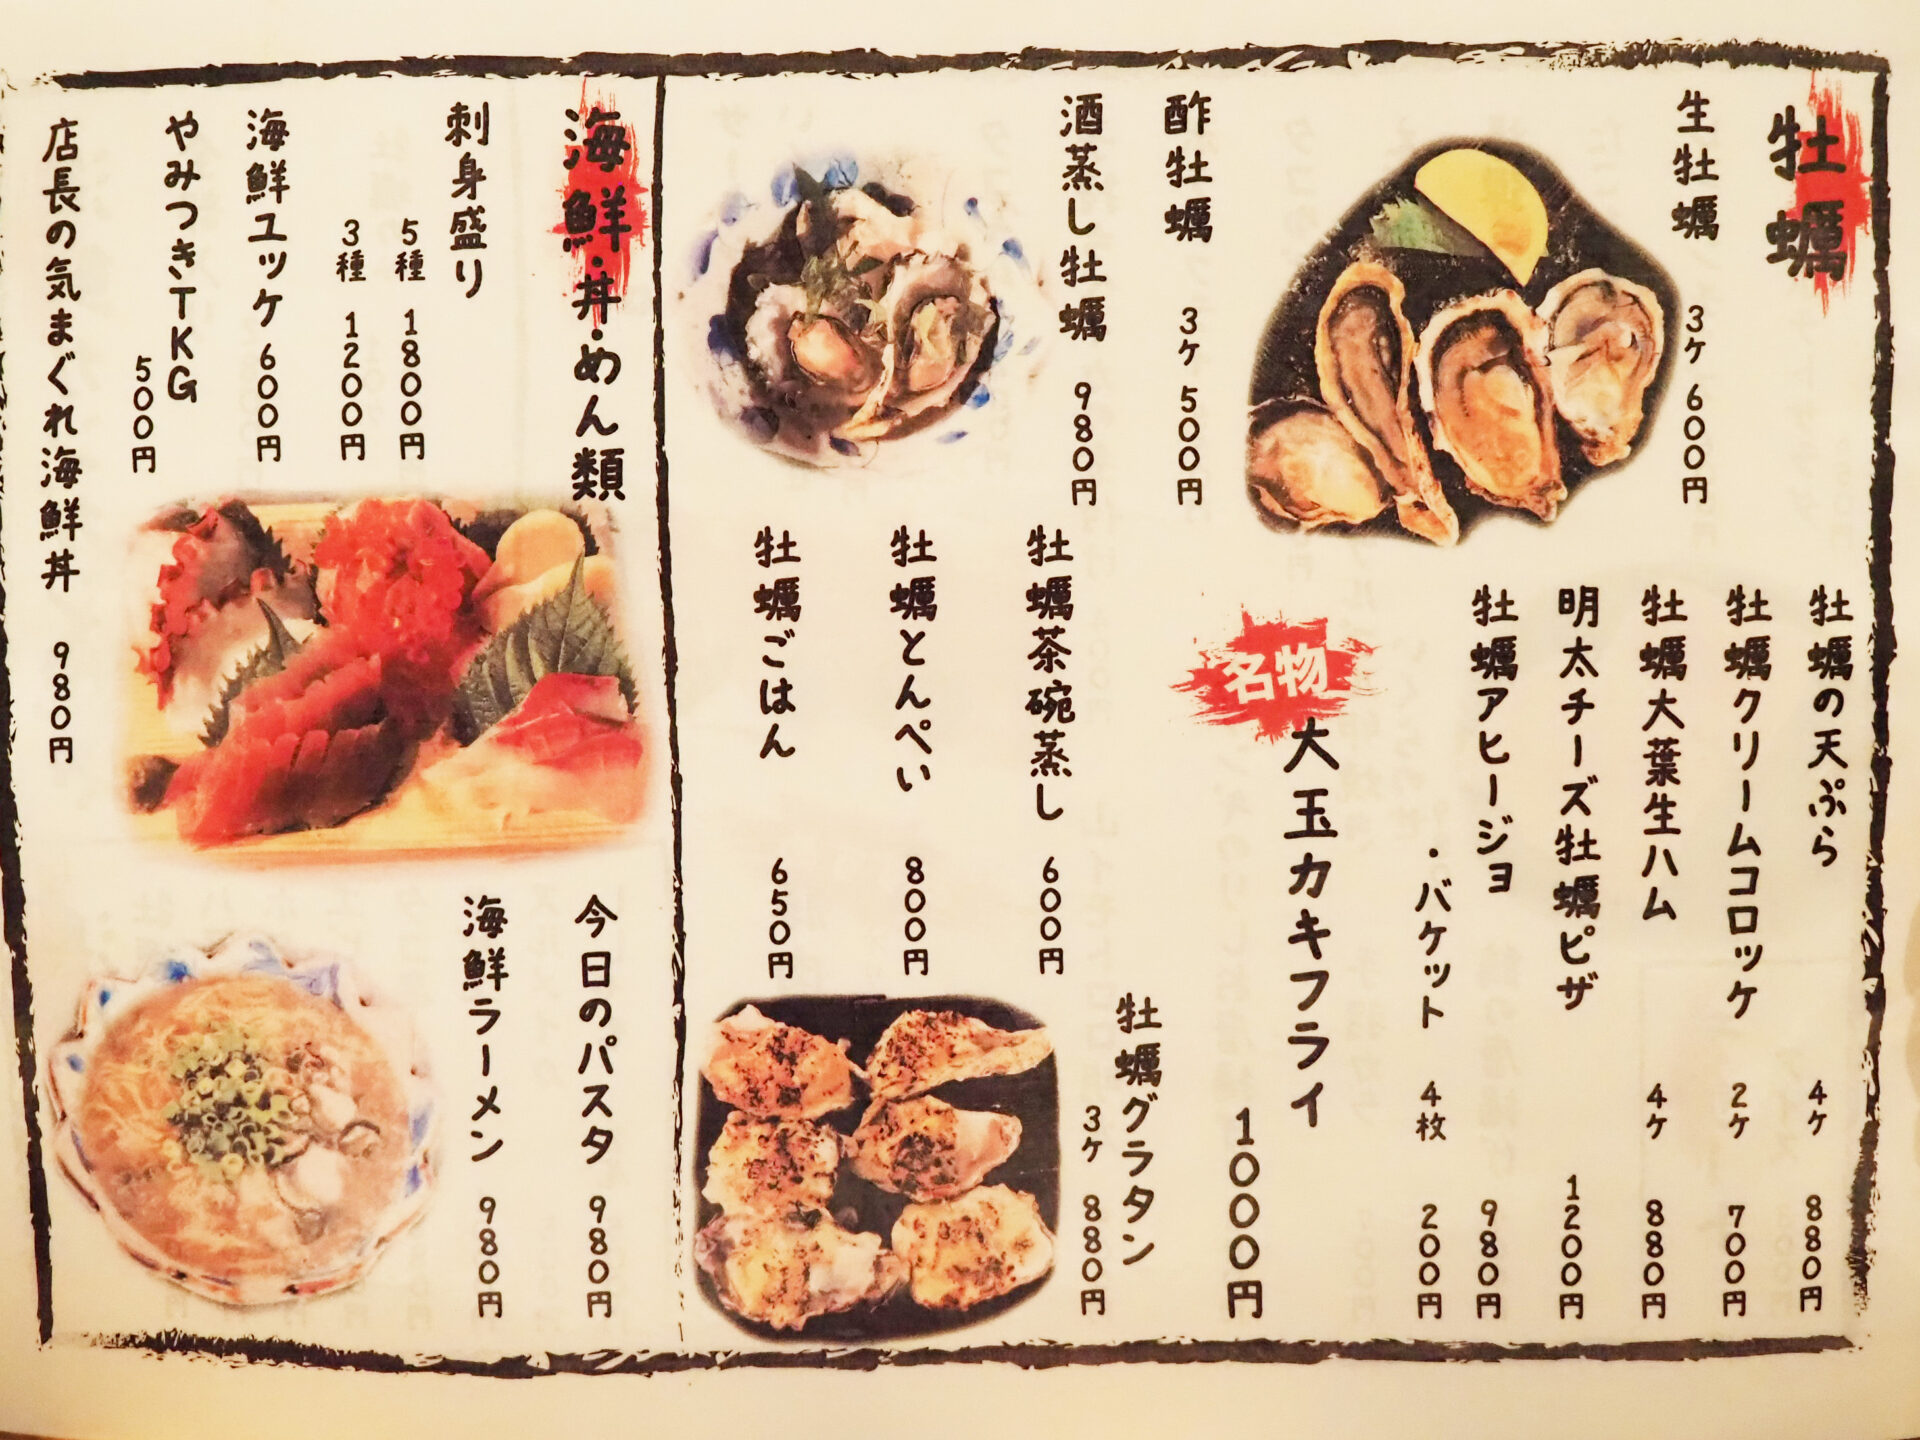 牡蠣
生牡蠣 3ケ 600円
酢牡蠣 3ケ 500円
酒蒸し牡蠣 980円
牡蠣の天ぷら 4ケ 880円
牡蠣クリームコロッケ 2ケ 700円
牡蠣大葉生ハム 4ケ 880円
明太チーズ牡蠣ピザ 1200円
牡蠣アヒージョ 980円
・バケット 4枚 200円
名物
大玉カキフライ
1000円
牡蠣茶碗蒸し 600円
牡蠣とんぺい 800円
牡蠣ごはん 650円
牡蠣グラタン
3ケ 880円
海鮮・丼・めん類
刺身盛り
5種 1800円
3種 1200円
海鮮ユッケ 600円
やみつきTKG
500円
店長の気まぐれ海鮮丼 980円
今日のパスタ 980円
海鮮ラーメン 980円